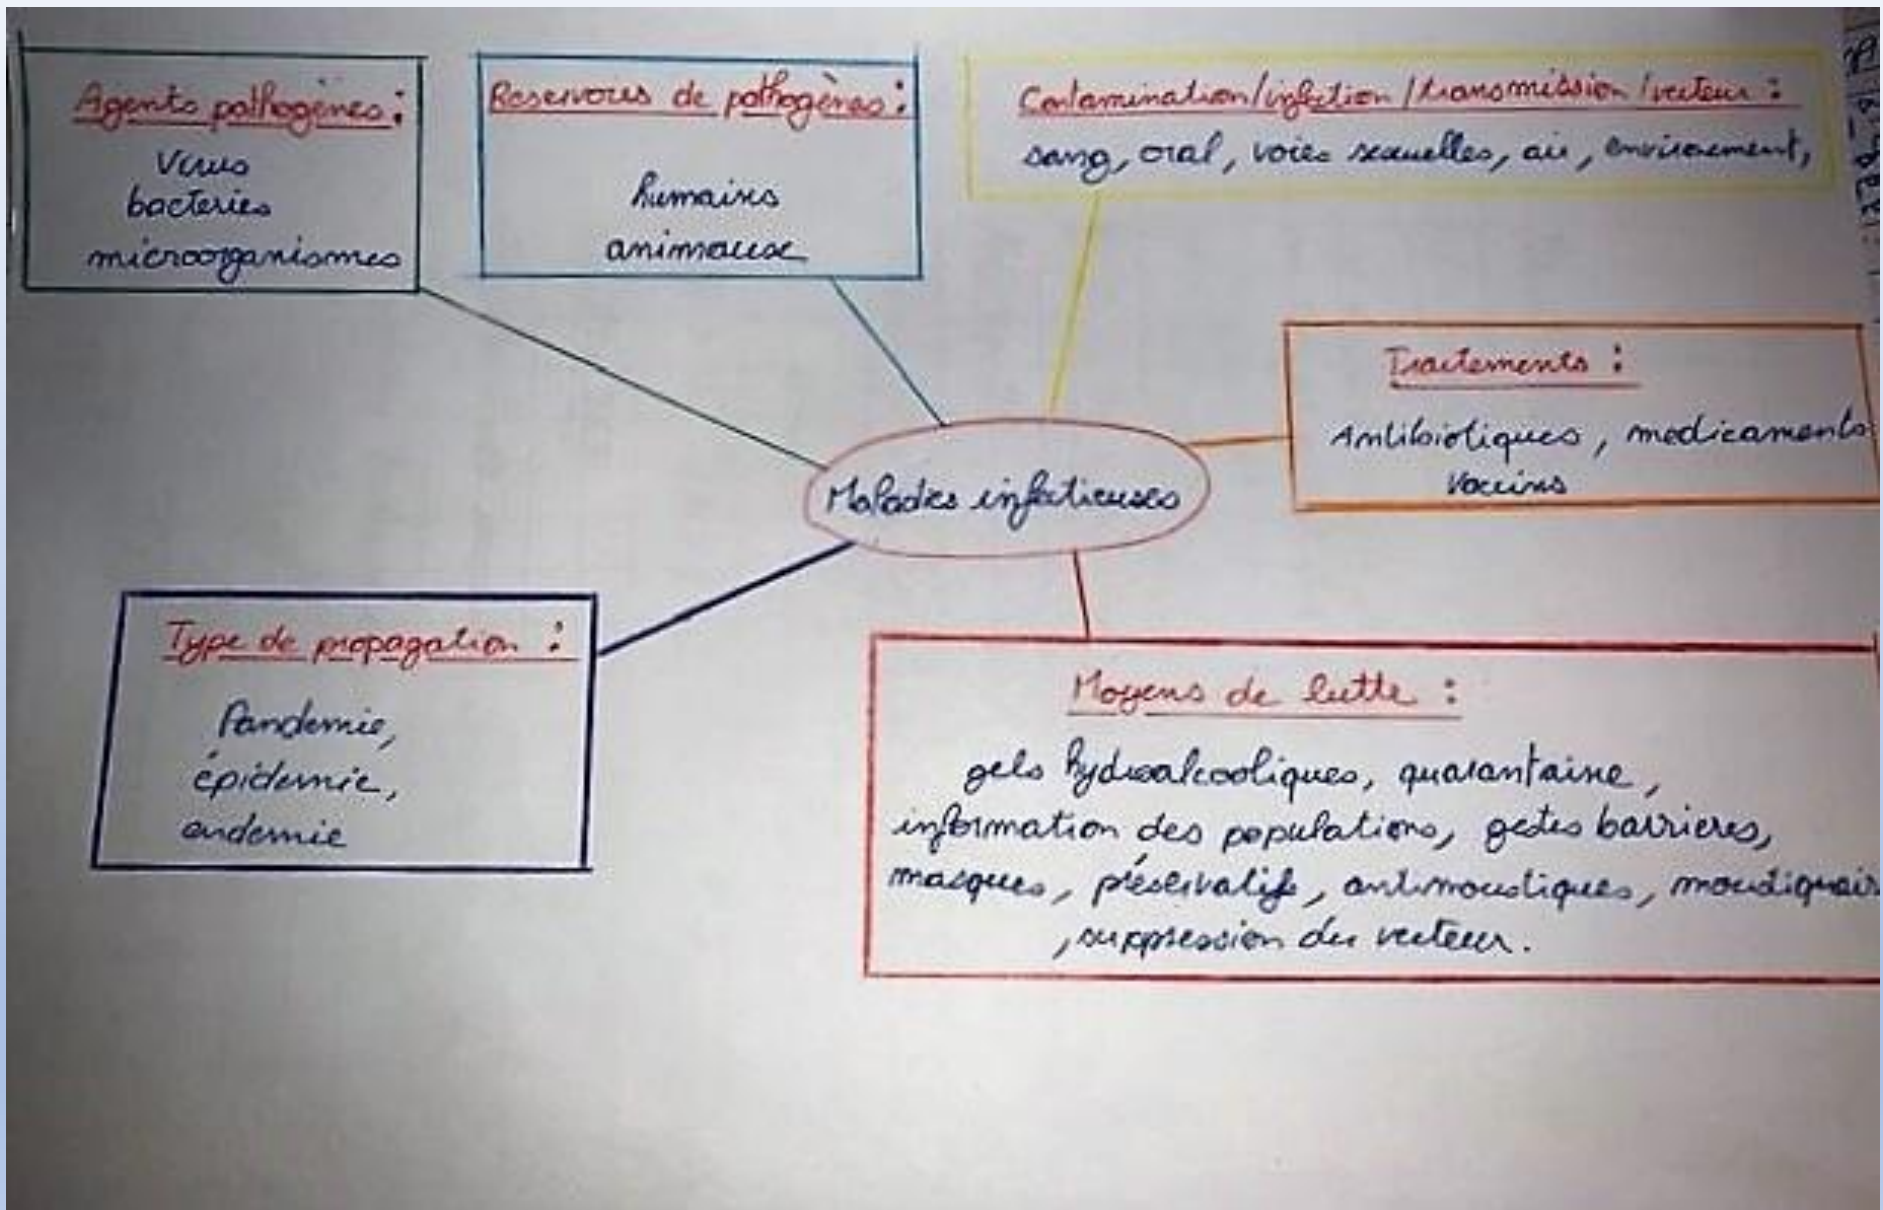 Agents pathogènes :
Virus
bacteries
microorganismes
Reservoires de pathogènes :
humains
animaux
Contamination/infection/transmission/vecteur :
sang, oral, voies sexuelles, air, environement,
Traitements :
Antibiotiques, medicaments
Vaccins
Maladies infectieuses
Type de propagation :
Pandemie,
épidemie,
endemie
Moyens de lutte :
gels hydroalcooliques, quarantaine,
information des populations, gestes barrieres,
masques, préservatifs, antimoustiques, moustiquair
, suppression du vecteur.